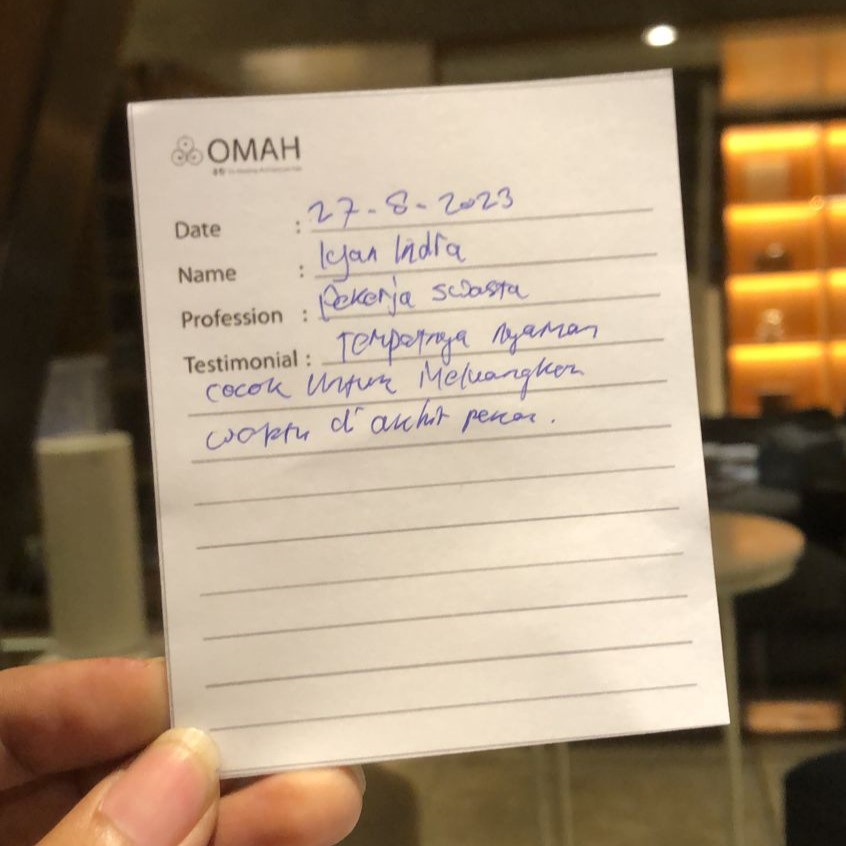 OMAH
Date : 27-8-2023
Name : Indra
Profession : Pekerja swasta
Testimonial : Tempatnya nyaman
cocok untuk Meluangkan
waktu d'akhir pekan.